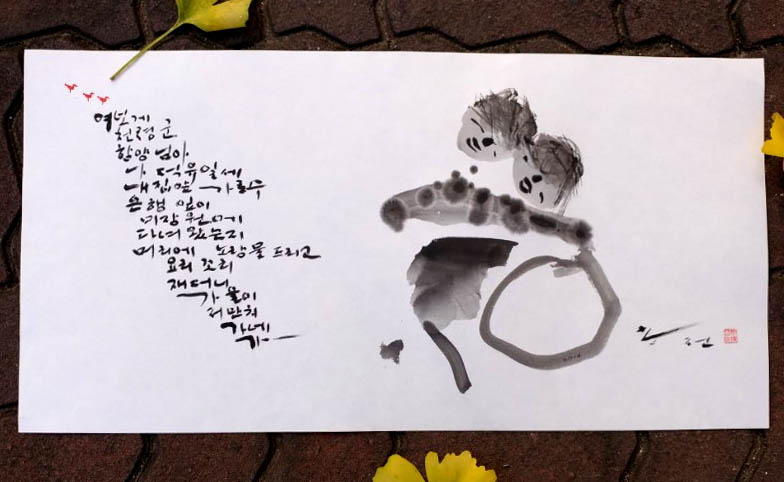 여보게
천령군
함양님아
나 덕유일세
내집앞 가로수
은행 잎이
미장원에
다녀 왔는지
머리에 노랑물 드리고
요리 조리
재더니
가을이
저만치
가네
가